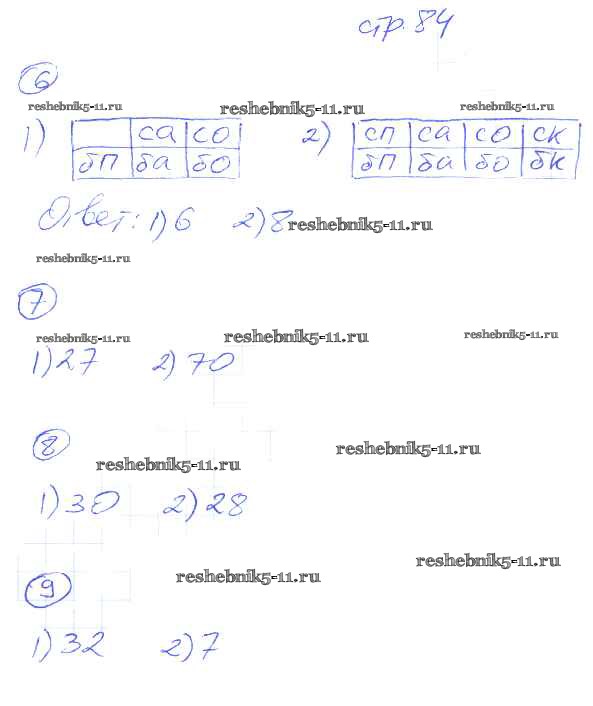 стр. 84
6
reshebnik5-11.ru reshebnik5-11.ru reshebnik5-11.ru
1) са со 2) сп са со ск
бп ба бо бп ба бо бк
Ответ: 1) 6 2) 8 reshebnik5-11.ru
reshebnik5-11.ru
7
reshebnik5-11.ru reshebnik5-11.ru reshebnik5-11.ru
1) 27 2) 70
8
reshebnik5-11.ru reshebnik5-11.ru
1) 30 2) 28
reshebnik5-11.ru
9 reshebnik5-11.ru
1) 32 2) 7